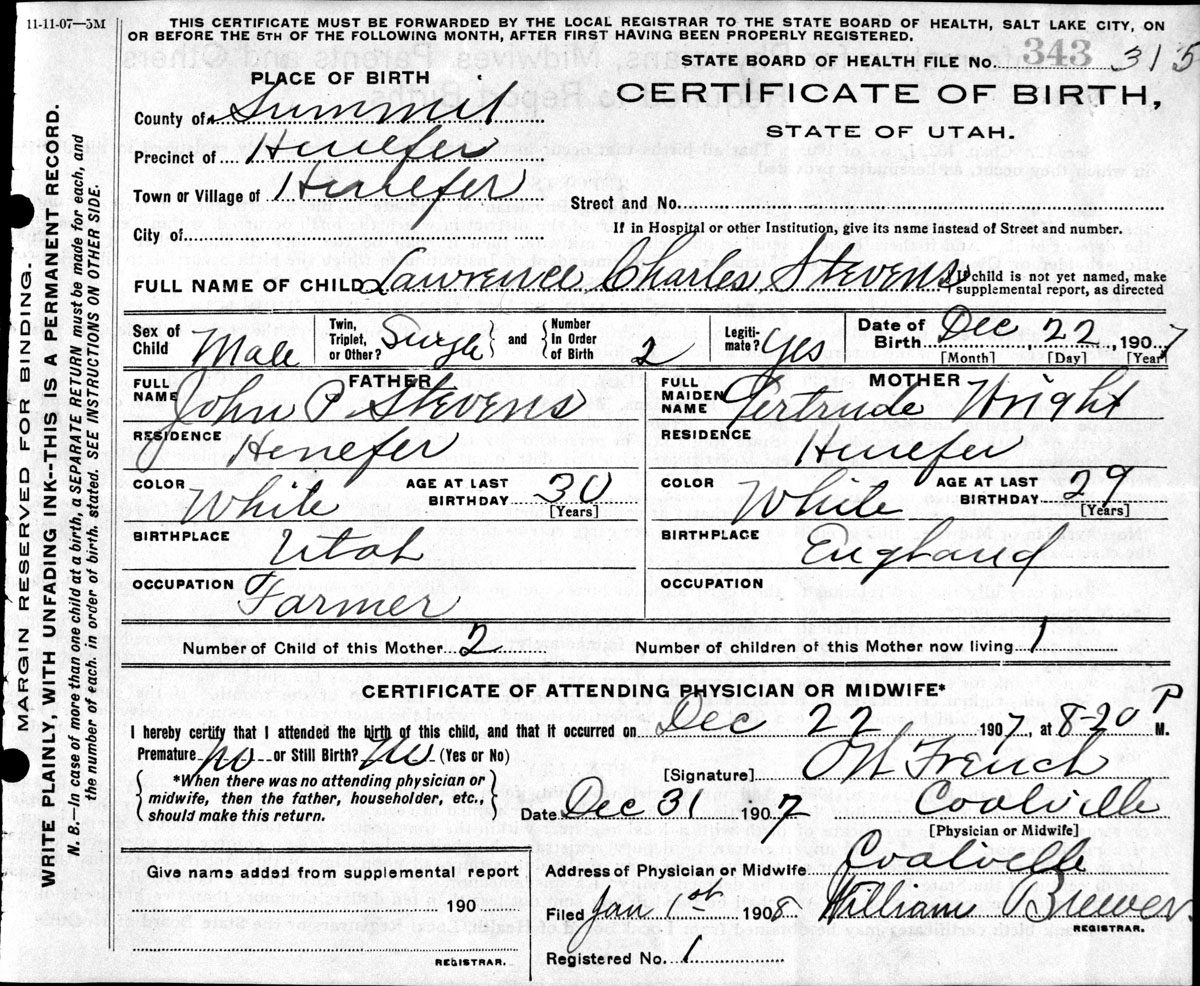 11-11-07—5M
THIS CERTIFICATE MUST BE FORWARDED BY THE LOCAL REGISTRAR TO THE STATE BOARD OF HEALTH, SALT LAKE CITY, ON
OR BEFORE THE 5TH OF THE FOLLOWING MONTH, AFTER FIRST HAVING BEEN PROPERLY REGISTERED.
STATE BOARD OF HEALTH FILE No. 343 315
PLACE OF BIRTH
CERTIFICATE OF BIRTH,
STATE OF UTAH.
County of Summit
Precinct of Henefer
Town or Village of Henefer
Street and No.
City of
If in Hospital or other Institution, give its name instead of Street and number.
FULL NAME OF CHILD Lawrence Charles Stevens
If child is not yet named, make
supplemental report, as directed
Sex of Child Male
Twin, Triplet, or Other? Single
and
Number In Order of Birth 2
Legitimate? Yes
Date of Birth Dec 22, 1907
[Month] [Day] [Year]
FATHER
FULL NAME John P. Stevens
MOTHER
FULL MAIDEN NAME Gertrude Wright
RESIDENCE Henefer
RESIDENCE Henefer
COLOR White
AGE AT LAST BIRTHDAY 30
[Years]
COLOR White
AGE AT LAST BIRTHDAY 29
[Years]
BIRTHPLACE Utah
BIRTHPLACE England
OCCUPATION Farmer
OCCUPATION
Number of Child of this Mother 2
Number of children of this Mother now living 1
CERTIFICATE OF ATTENDING PHYSICIAN OR MIDWIFE*
I hereby certify that I attended the birth of this child, and that it occurred on Dec 22 1907, at 8-20 P M.
Premature no or Still Birth? no (Yes or No)
*When there was no attending physician or
midwife, then the father, householder, etc.,
should make this return.
[Signature] French
Date Dec 31 1907 Coalville
[Physician or Midwife]
Give name added from supplemental report
190
REGISTRAR.
Address of Physician or Midwife Coalville
Filed Jan 1st 1908 William Brewer
REGISTRAR.
Registered No. 1
MARGIN RESERVED FOR BINDING.
WRITE PLAINLY, WITH UNFADING INK--THIS IS A PERMANENT RECORD.
N. B.—In case of more than one child at a birth, a SEPARATE RETURN must be made for each, and
the number of each, in order of birth, stated. SEE INSTRUCTIONS ON OTHER SIDE.